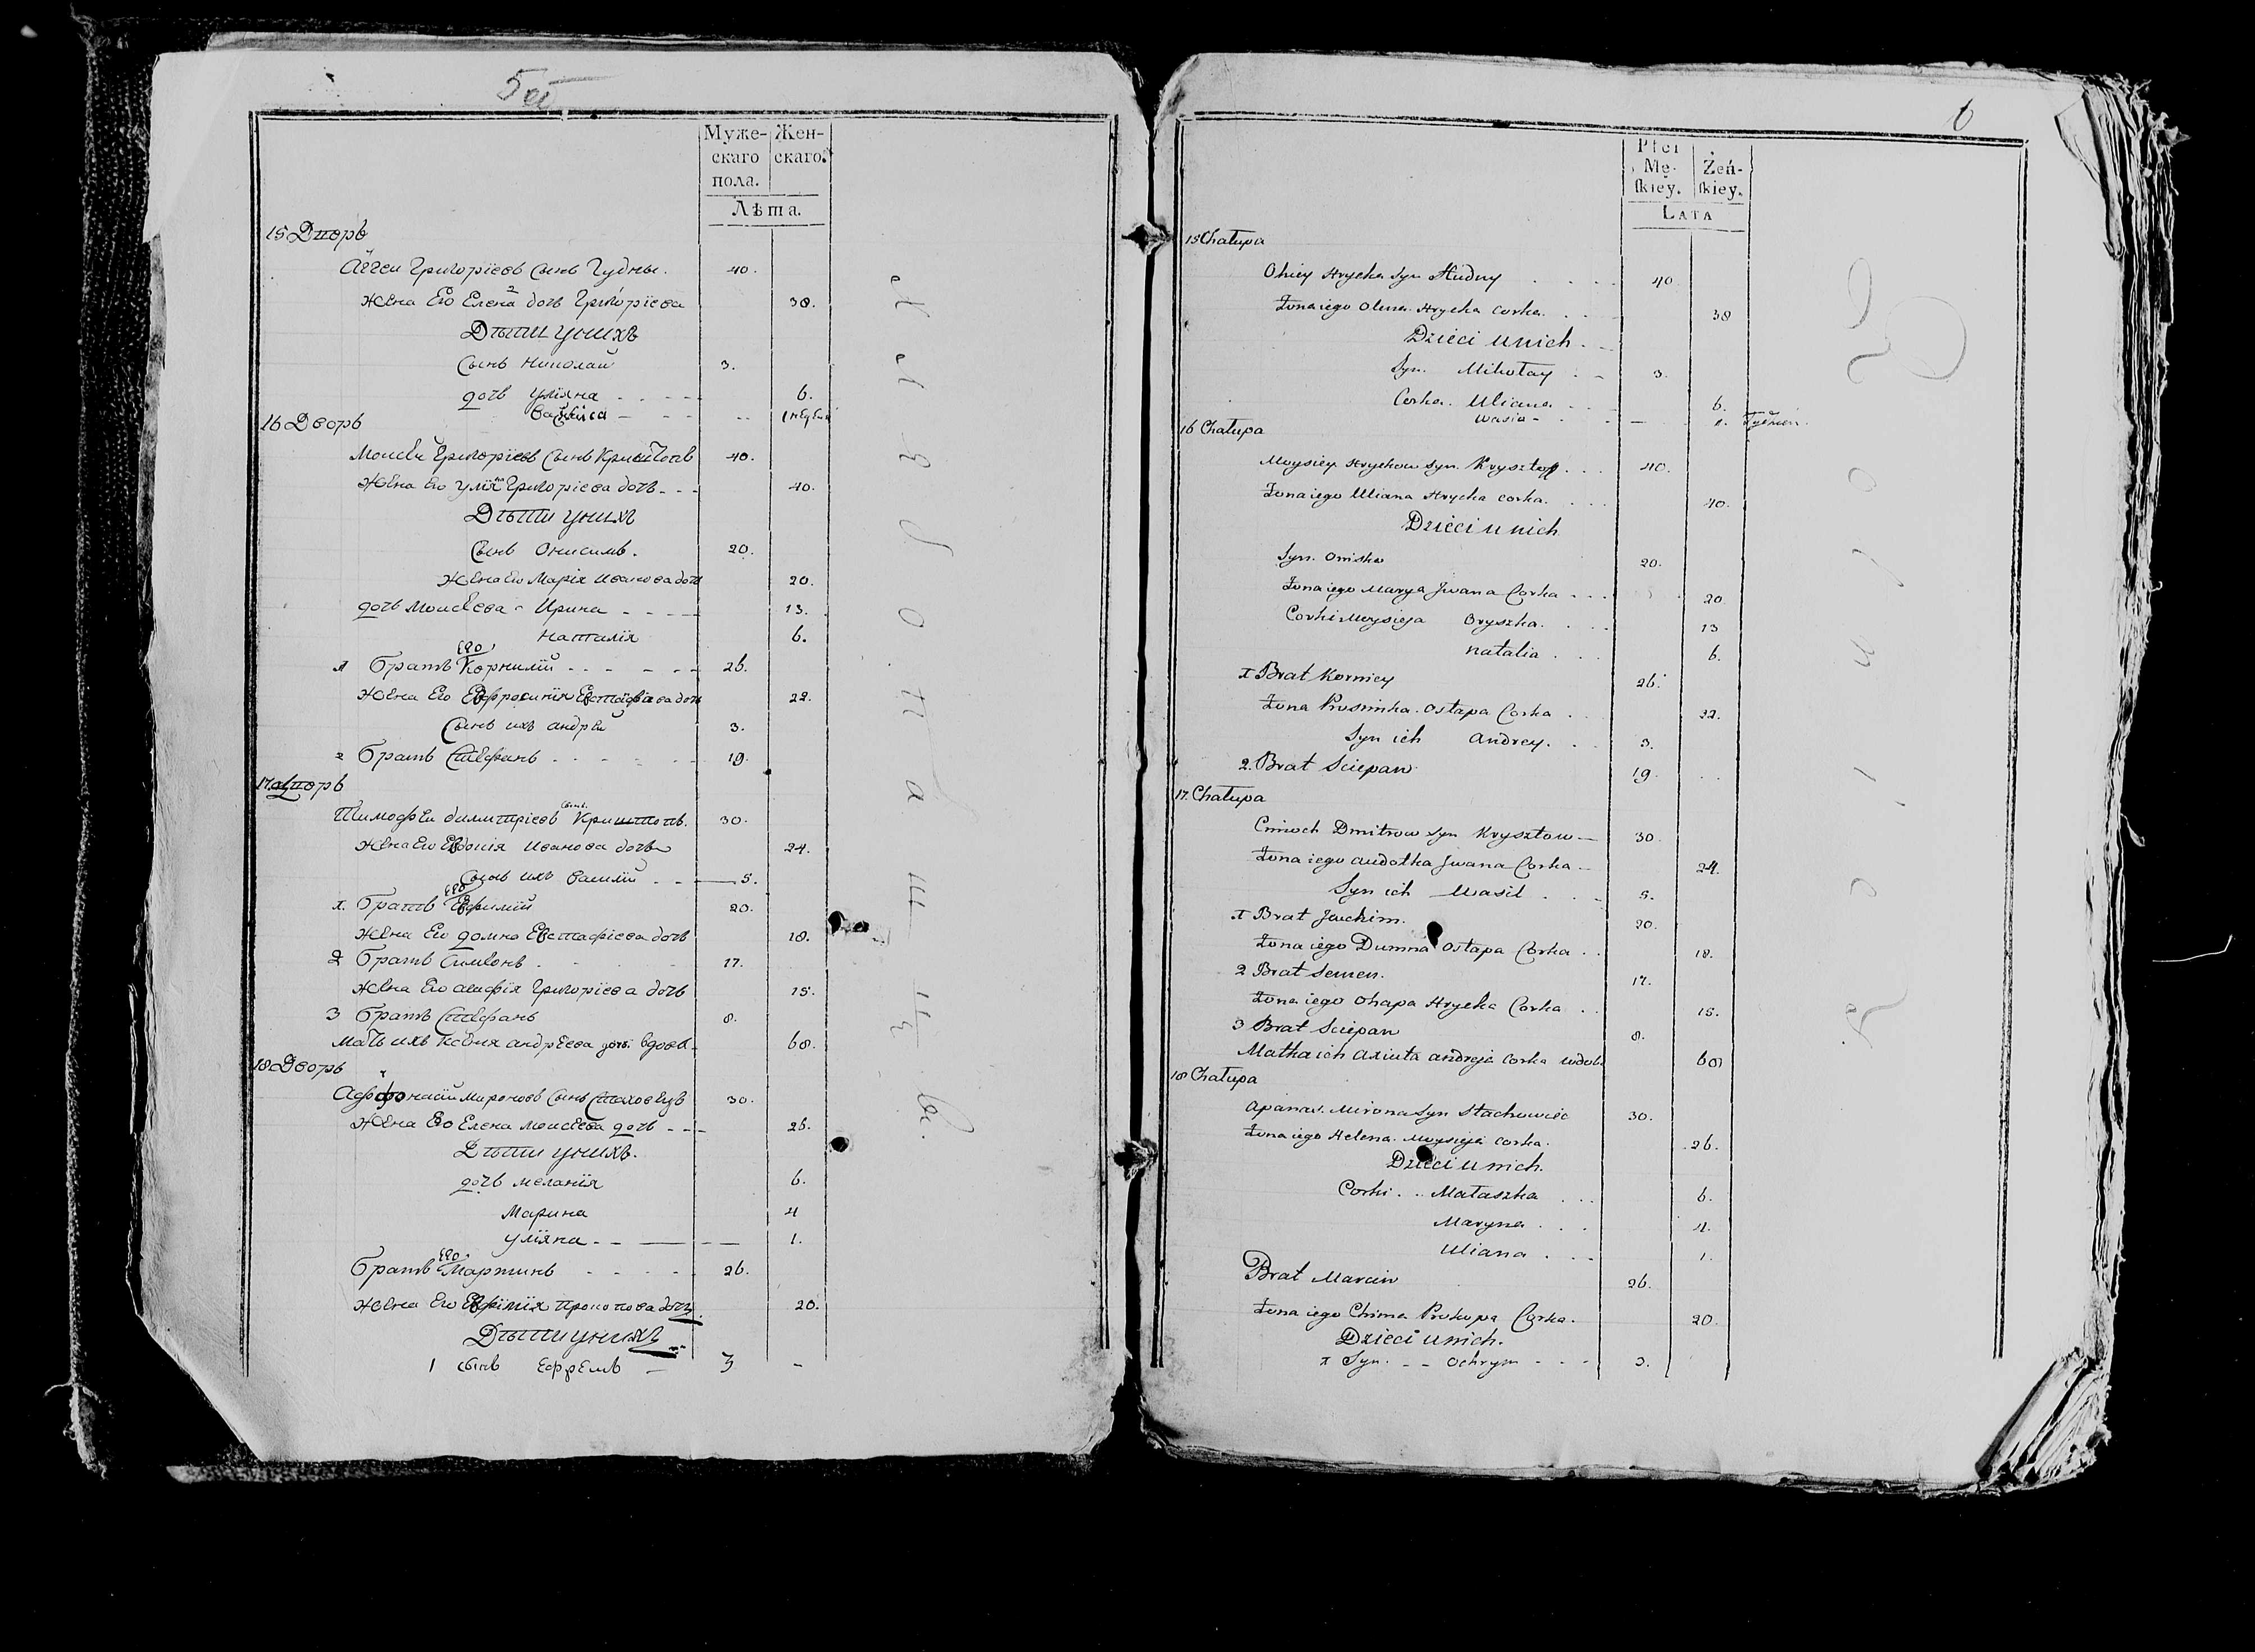 5
Муже-
скаго
пола.
Жен-
скаго.
Лѣта.
15 Дворъ
Аггеи Григорїевъ сынъ Гудны. 40.
Жена Его Елена дочь Григорїева 38.
Дѣти уныхъ
Сынъ Николай 3.
дочь Улїяна 6.
16 Дворъ
Моисей Григорїевъ сынъ Криштопъ 40.
Жена Его Улїяна Григорїева дочь 40.
Дѣти уныхъ
Сынъ Онисимъ. 20.
Жена Его Марїя Иванова дочь 20.
дочь Моисеева Ирина 13.
Наталїя 6.
1 Братъ Его Корнилїй 26.
Жена Его Евфросинїя Евстафїева дочь 22.
Сынъ ихъ андрей 3.
2 Братъ Стефанъ 19.
17. дворъ
Тимофей димитрїевъ Сынъ Криштопъ. 30.
Жена Его Евдокїя Иванова дочь 24.
Сынъ ихъ Василїй 5.
1. Братъ Его Ефимїй 20.
Жена Его домна Евстафїева дочь 18.
2 Братъ Симеонъ 17.
Жена Его агафїя Григорїева дочь 15.
3 Братъ Стефанъ 8.
Мать ихъ Ксенїя андреева дочь вдова 60.
18 Дворъ
Аффонасїй Мироновъ сынъ Стаховецъ 30.
Жена Его Елена Моисеева дочь 26.
Дѣти уныхъ.
дочь меланїя 6.
Марина 4
улїяна 1.
Братъ Его Мартинъ 26.
Жена Его Евфимїя Прокопова дочь 20.
Дѣти уныхъ
1 сынъ Ефремъ 3
6
Płci
Mę-
ſkiey.
Żeń-
ſkiey.
LATA
15 Chałupa
Ohiey Hrycka syn Hudny 40
Żona iego Olena Hrycka corka. 38
Dzieci u nich
Syn. Mikołay 3.
Corka. Uliana 6.
Wasia 1. Tydzień.
16 Chałupa
Moysiey Hryckow syn Krysztop 40.
Żona iego Uliana Hrycka corka. 40.
Dzieci u nich
Syn. Oniśko 20.
Żona iego Marya Jwana Corka 20
Corki Moysieja Oryszka. 13
Natalia 6.
1 Brat Korniey 26.
Żona Prosimka Ostapa Corka 22.
Syn ich Andrey. 3.
2. Brat Sciepan 19.
17. Chałupa
Cimoch Dmitrow syn Krysztow 30.
Żona iego Audotka Jwana Corka 24.
Syn ich Wasil 5.
1 Brat Jachim. 20.
Żona iego Dumna Ostapa Corka 18.
2 Brat Semen. 17.
Żona iego Ohapa Hrycka Corka 15.
3 Brat Sciepan 8.
Matka ich Axiuta andreja Corka wdowa 60
18 Chałupa
Apanas. Mirona syn Stachowiec 30.
Żona iego Helena. Moysieja corka. 26.
Dzieci u nich.
Corki Małaszka 6.
Maryna 4.
Uliana 1.
Brat Marcin 26.
Żona iego Chima Prokopa Corka. 20.
Dzieci u nich.
1 Syn. Ochrym 3.